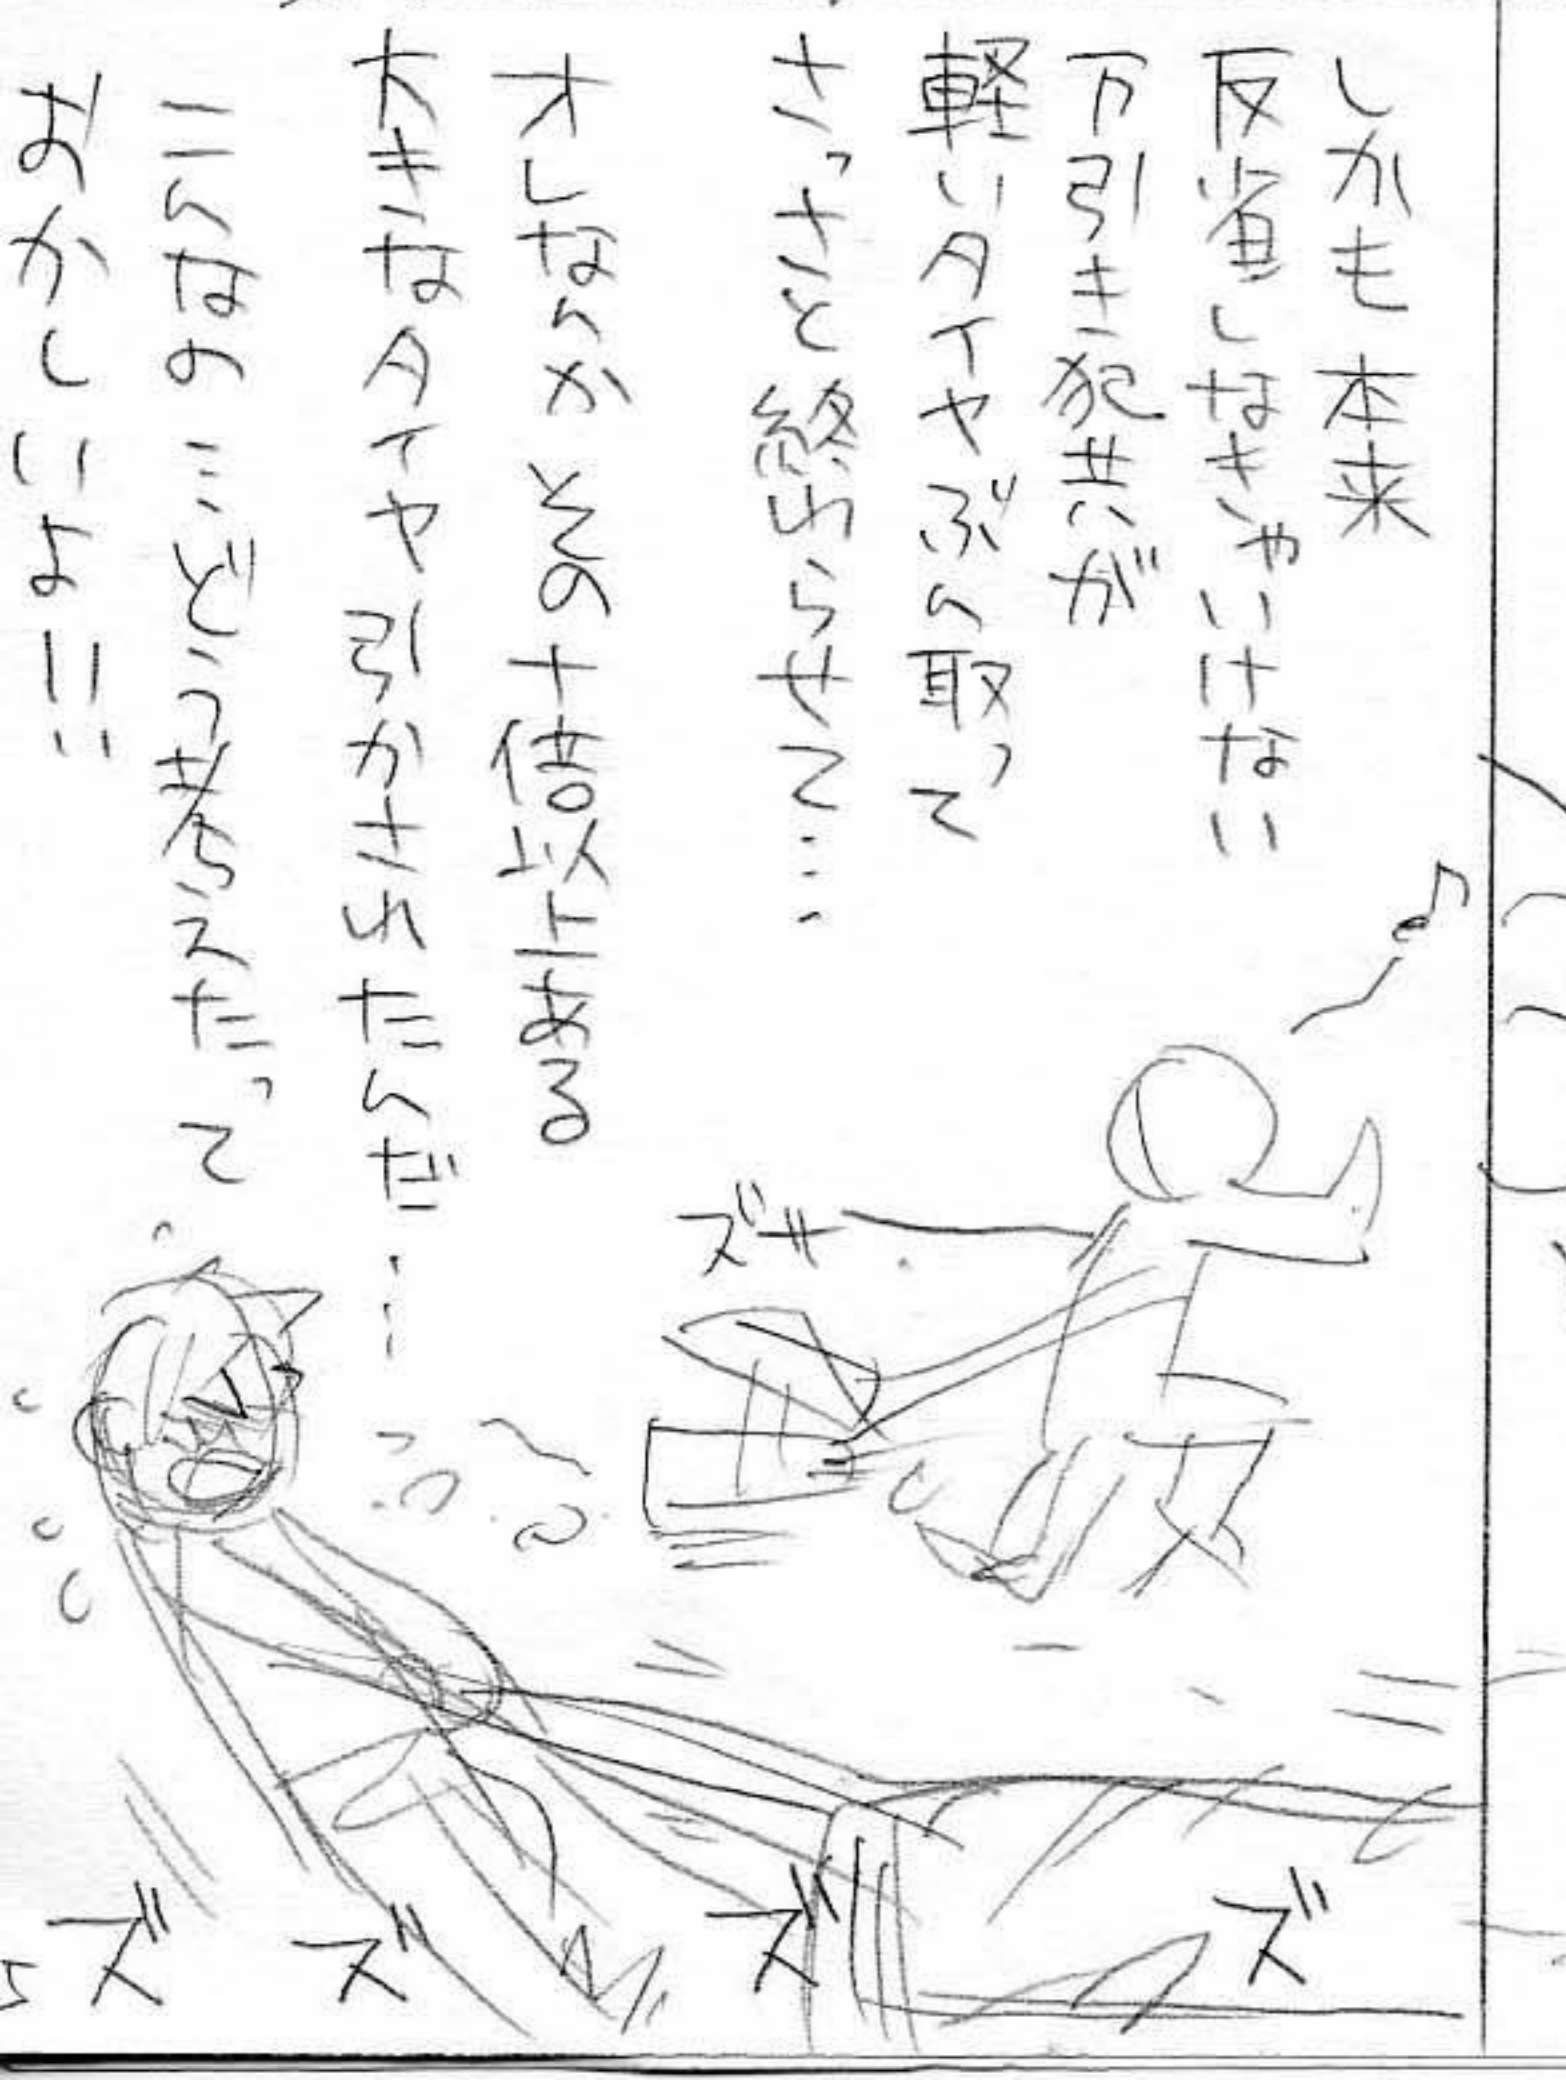 しかも本来
反省しなきゃいけない
万引き犯共が
軽いタイヤぶん取って
さっさと終わらせて…
オレなんかその十倍以上ある
大きなタイヤ引かされたんだ……
こんなの…どう考えたって
おかしいよ!!
♪
ズサー
ズ
ズ
ズ
ズ